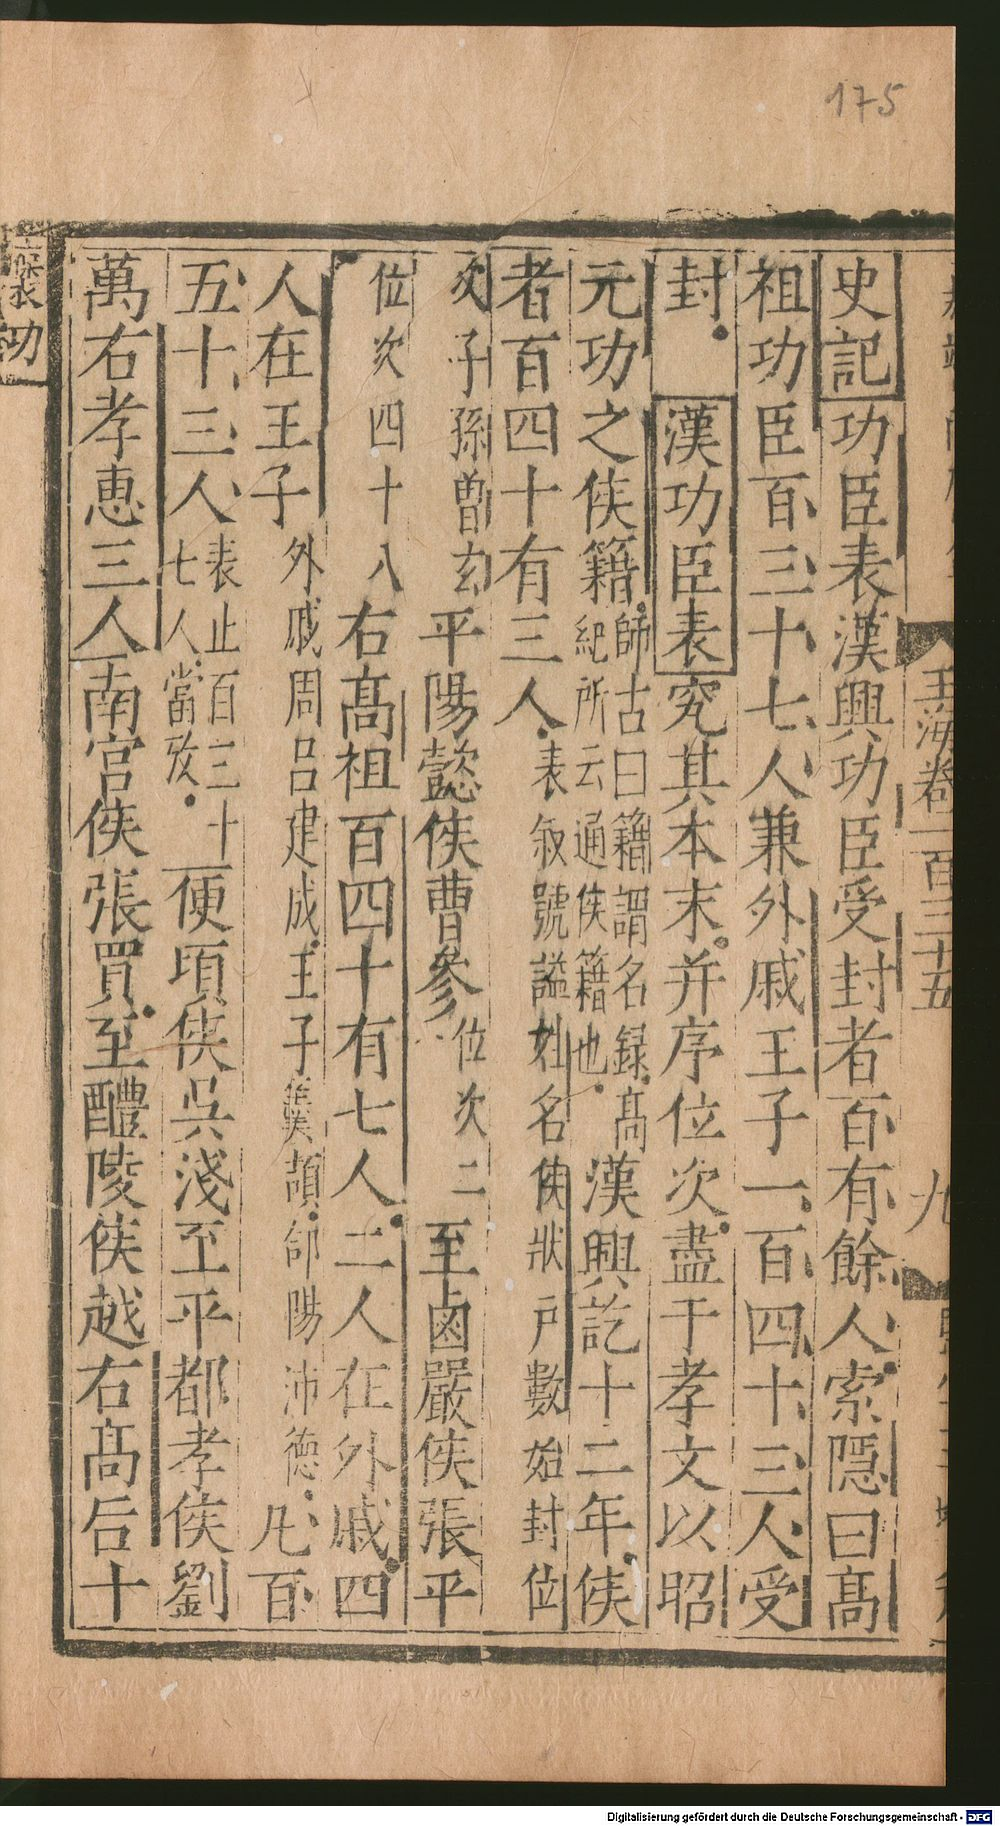 175
玉海卷一百三十五
九
史記功臣表漢興功臣受封者百有餘人索隱曰髙
祖功臣百三十七人兼外戚王子一百四十三人受
封 漢功臣表究其本末并序位次盡于孝文以昭
元功之侯籍師古曰籍謂名録髙紀所云通侯籍也漢興訖十二年侯
者百四十有三人表敘號謚姓名侯狀户數始封位
次子孫曾玄平陽懿侯曹參位次二至鹵嚴侯張平
位次四十八右髙祖百四十有七人二人在外戚四
人在王子外戚周吕建成王子羹頡郃陽沛德凡百
五十三人表止百三十七人當攷便頃侯吳淺至平都孝侯劉
萬右孝惠三人南宫侯張買至醴陵侯越右髙后十
褒功
Digitalisierung gefördert durch die Deutsche Forschungsgemeinschaft - DFG